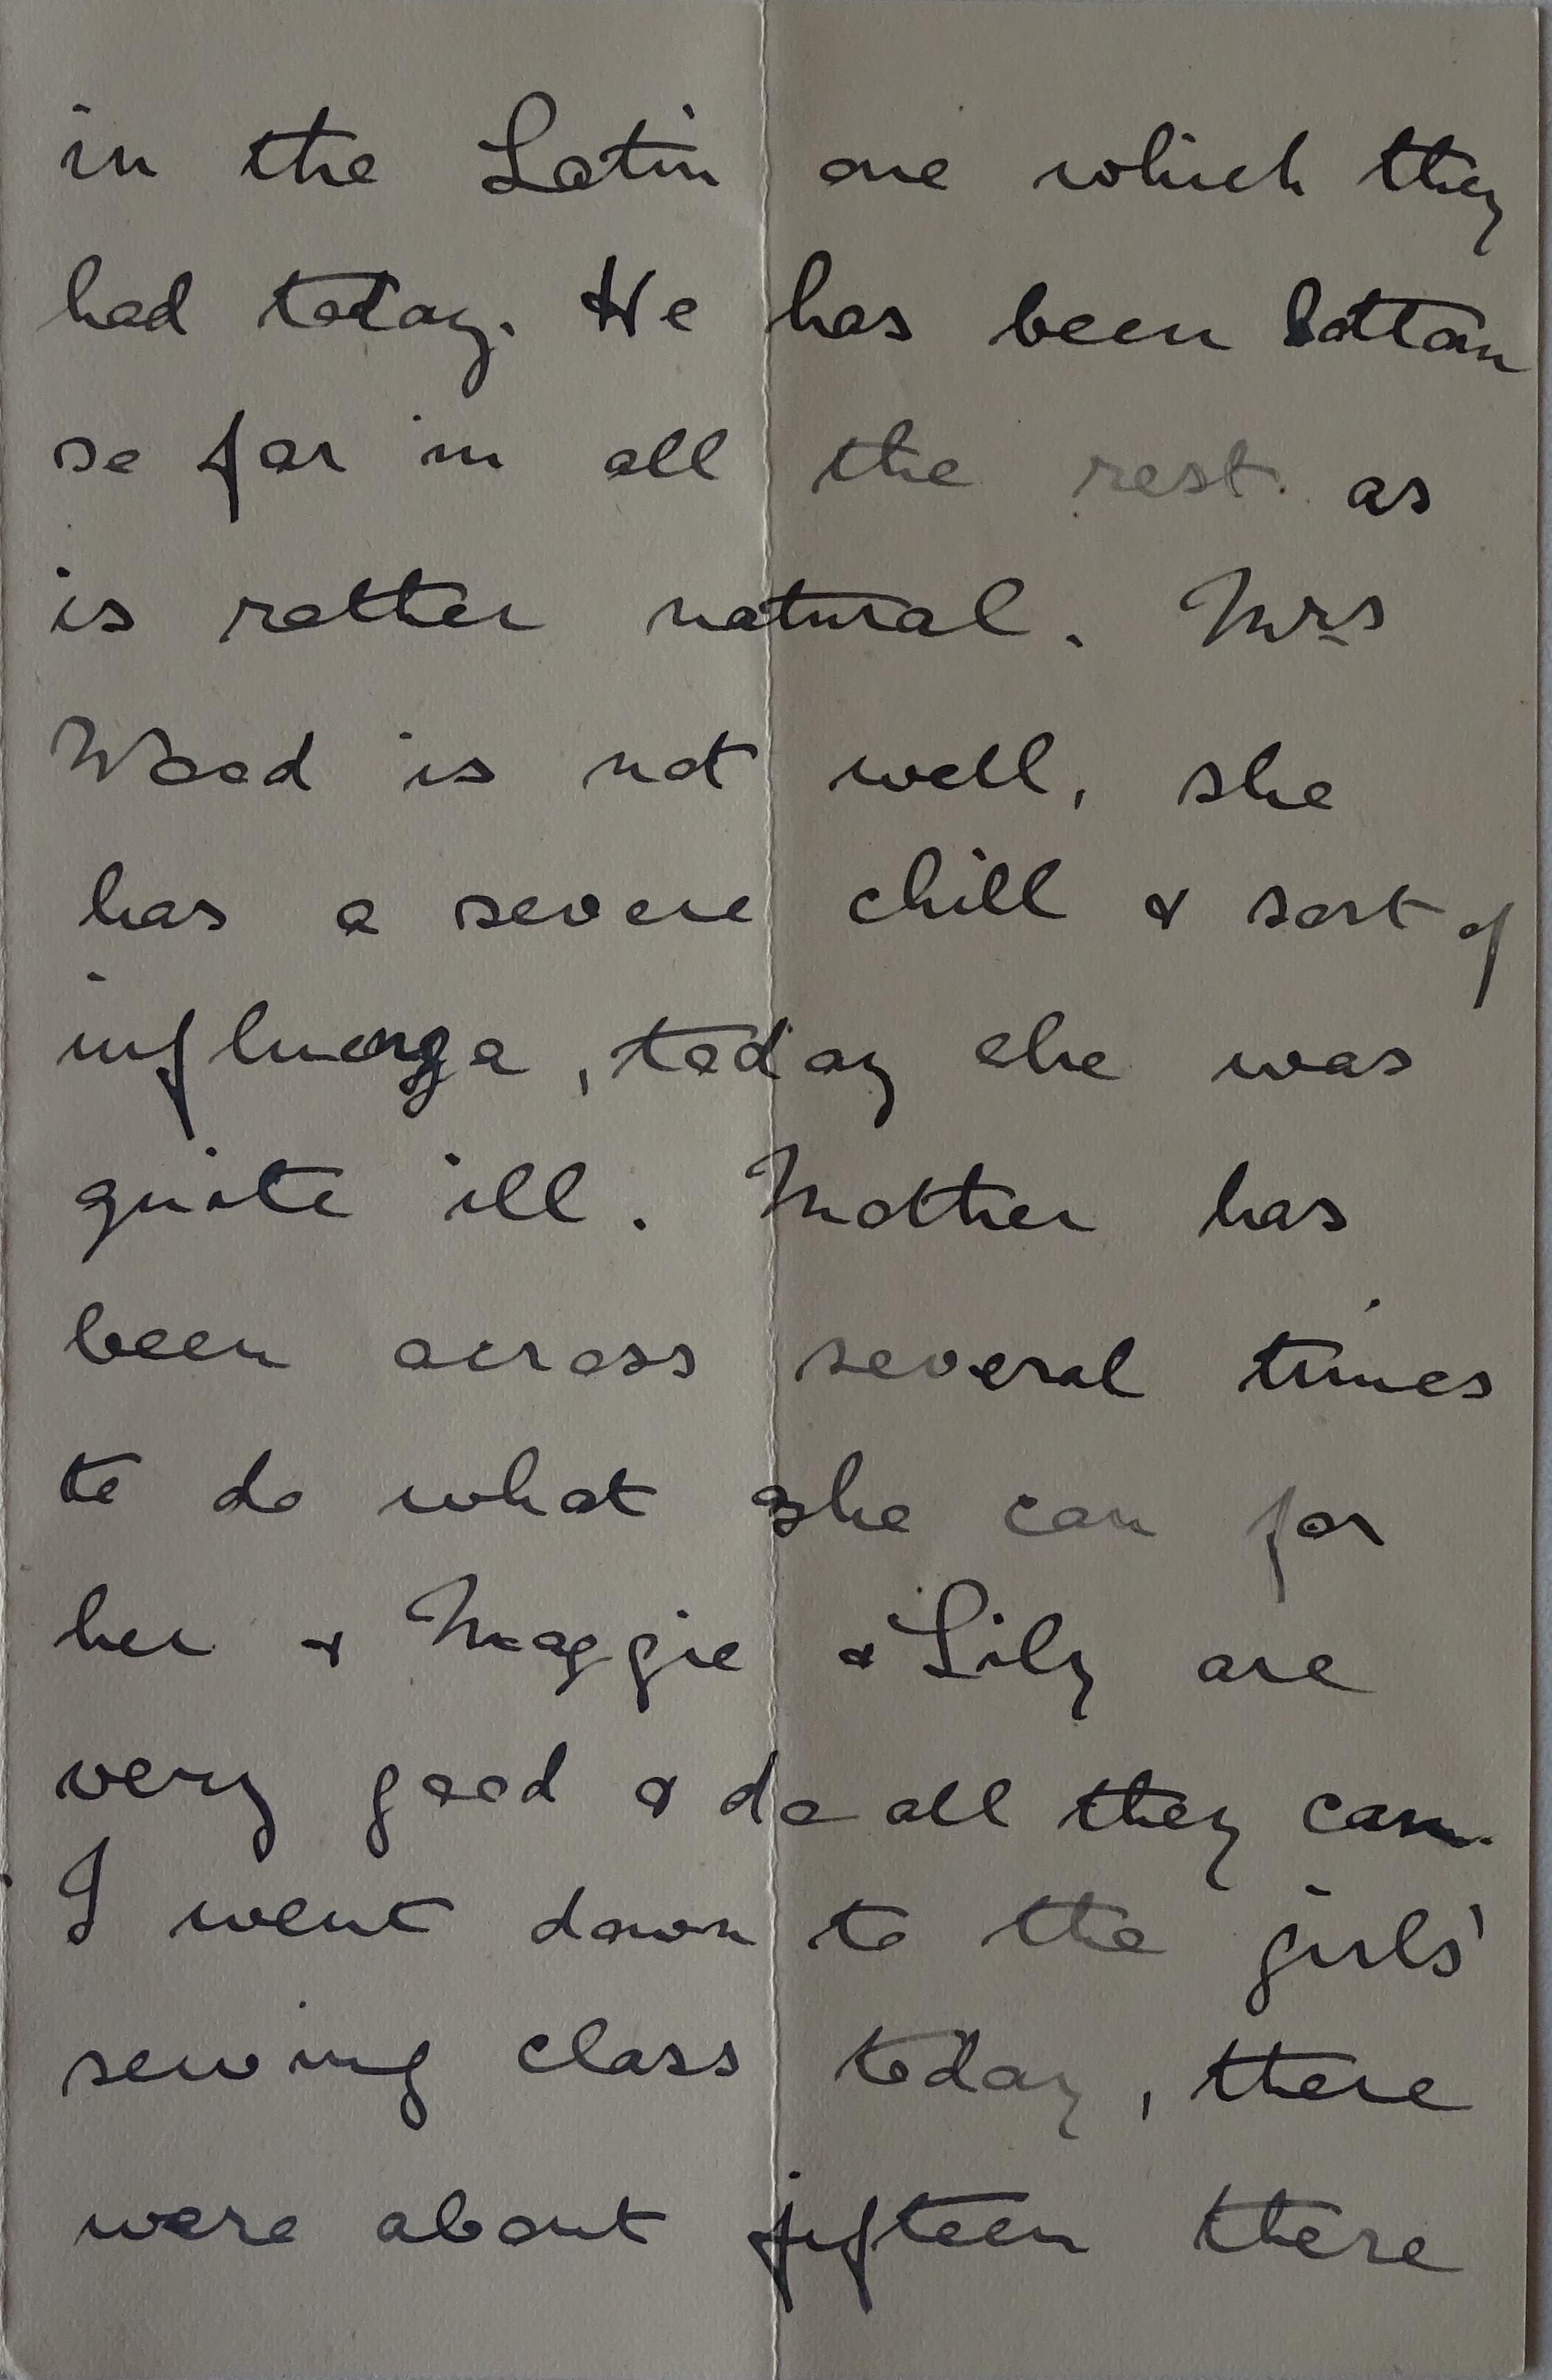 in the Latin one which they
had today. He has been bottom
so far in all the rest. as
is rather natural. Mrs
Wood is not well, she
has a severe chill & sort of
influenza, today she was
quite ill. Mother has
been across several times
to do what she can for
her & Maggie & Lily are
very good & do all they can.
I went down to the girls'
sewing class today, there
were about fifteen there